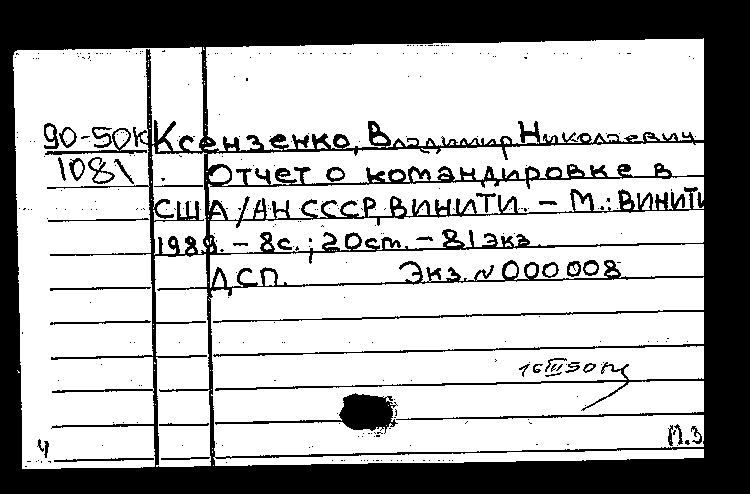 90-50К Ксензенко, Владимир Николаевич
1081 Отчет о командировке в
США/АН СССР, ВИНИТИ. - М.: ВИНИТИ
1989. - 8с.; 20см. - 81 экз.
ДСП. Экз. № 000008
ч П.З.